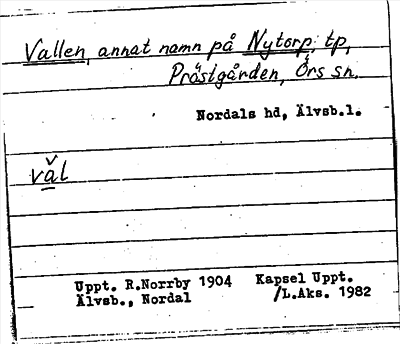 Vallen, annat namn på Nytorp, tp,
Prästgården, Örs sn.
Nordals hd, Älvsb.l.
vål
Uppt. R.Norrby 1904 Kapsel Uppt.
Älvsb., Nordal /L.Aks. 1982